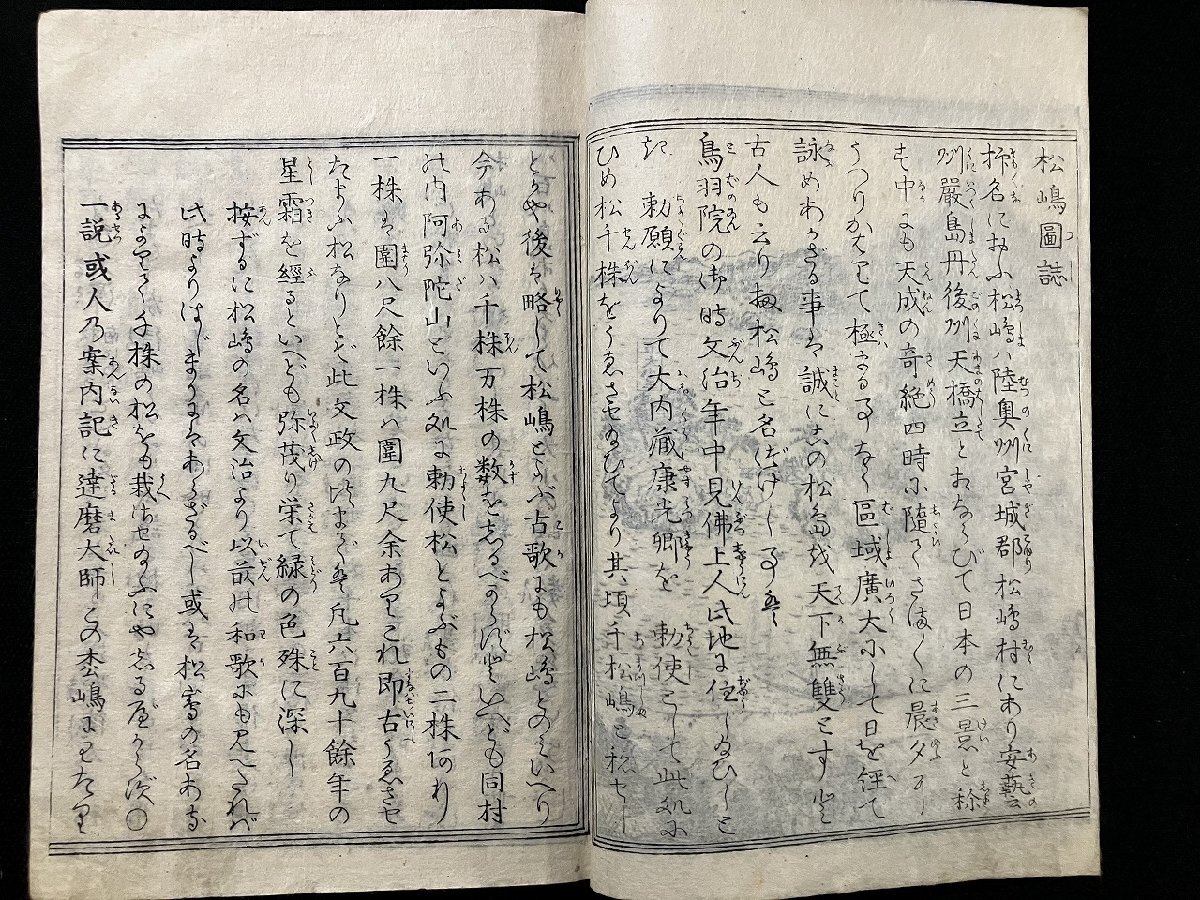 松嶋圖誌
抑名におふ松嶋ハ陸奥州宮城郡松嶋村にあり安藝
州嚴島丹後州天橋立とおならびて日本の三景と称
す中にも天成の奇絶四時に隨てさま〳〵に晨夕
うつりかはりて極まる事なく區域廣大にして日を經て
詠めあかざる事は誠にこの松島は天下無雙とす
古人も云り松嶋と名づけし事は
鳥羽院の御時文治年中見佛上人此地に住し給ひしと
き 勅願によりて大内藏康光卿を 勅使として此処に
ひめ松千株をうゑさせ給ひてより其頃千松嶋と称せ
しとかや後は略して松嶋とよぶ古歌にも松嶋とのミいへり
今ある松ハ千株万株の数をしるべからずといへども同村
の内阿弥陀山といふ処に勅使松とよぶもの二株あり
一株は圍八尺餘一株ハ圍九尺余ありこれ即古うゑさせ
たまふ松なりとぞ此文政の頃まで凡六百九十餘年の
星霜を經るといへども弥茂り栄て緑の色殊に深し
按ずるに松嶋の名ハ文治より以前の和歌にも見へたれば
此時よりはじまりにはあらざるべし或は松嶌の名あるに
よりて千株の松をも栽させ給ふにやしるべからず○
一説或人乃案内記に達磨大師この松嶋にわたり